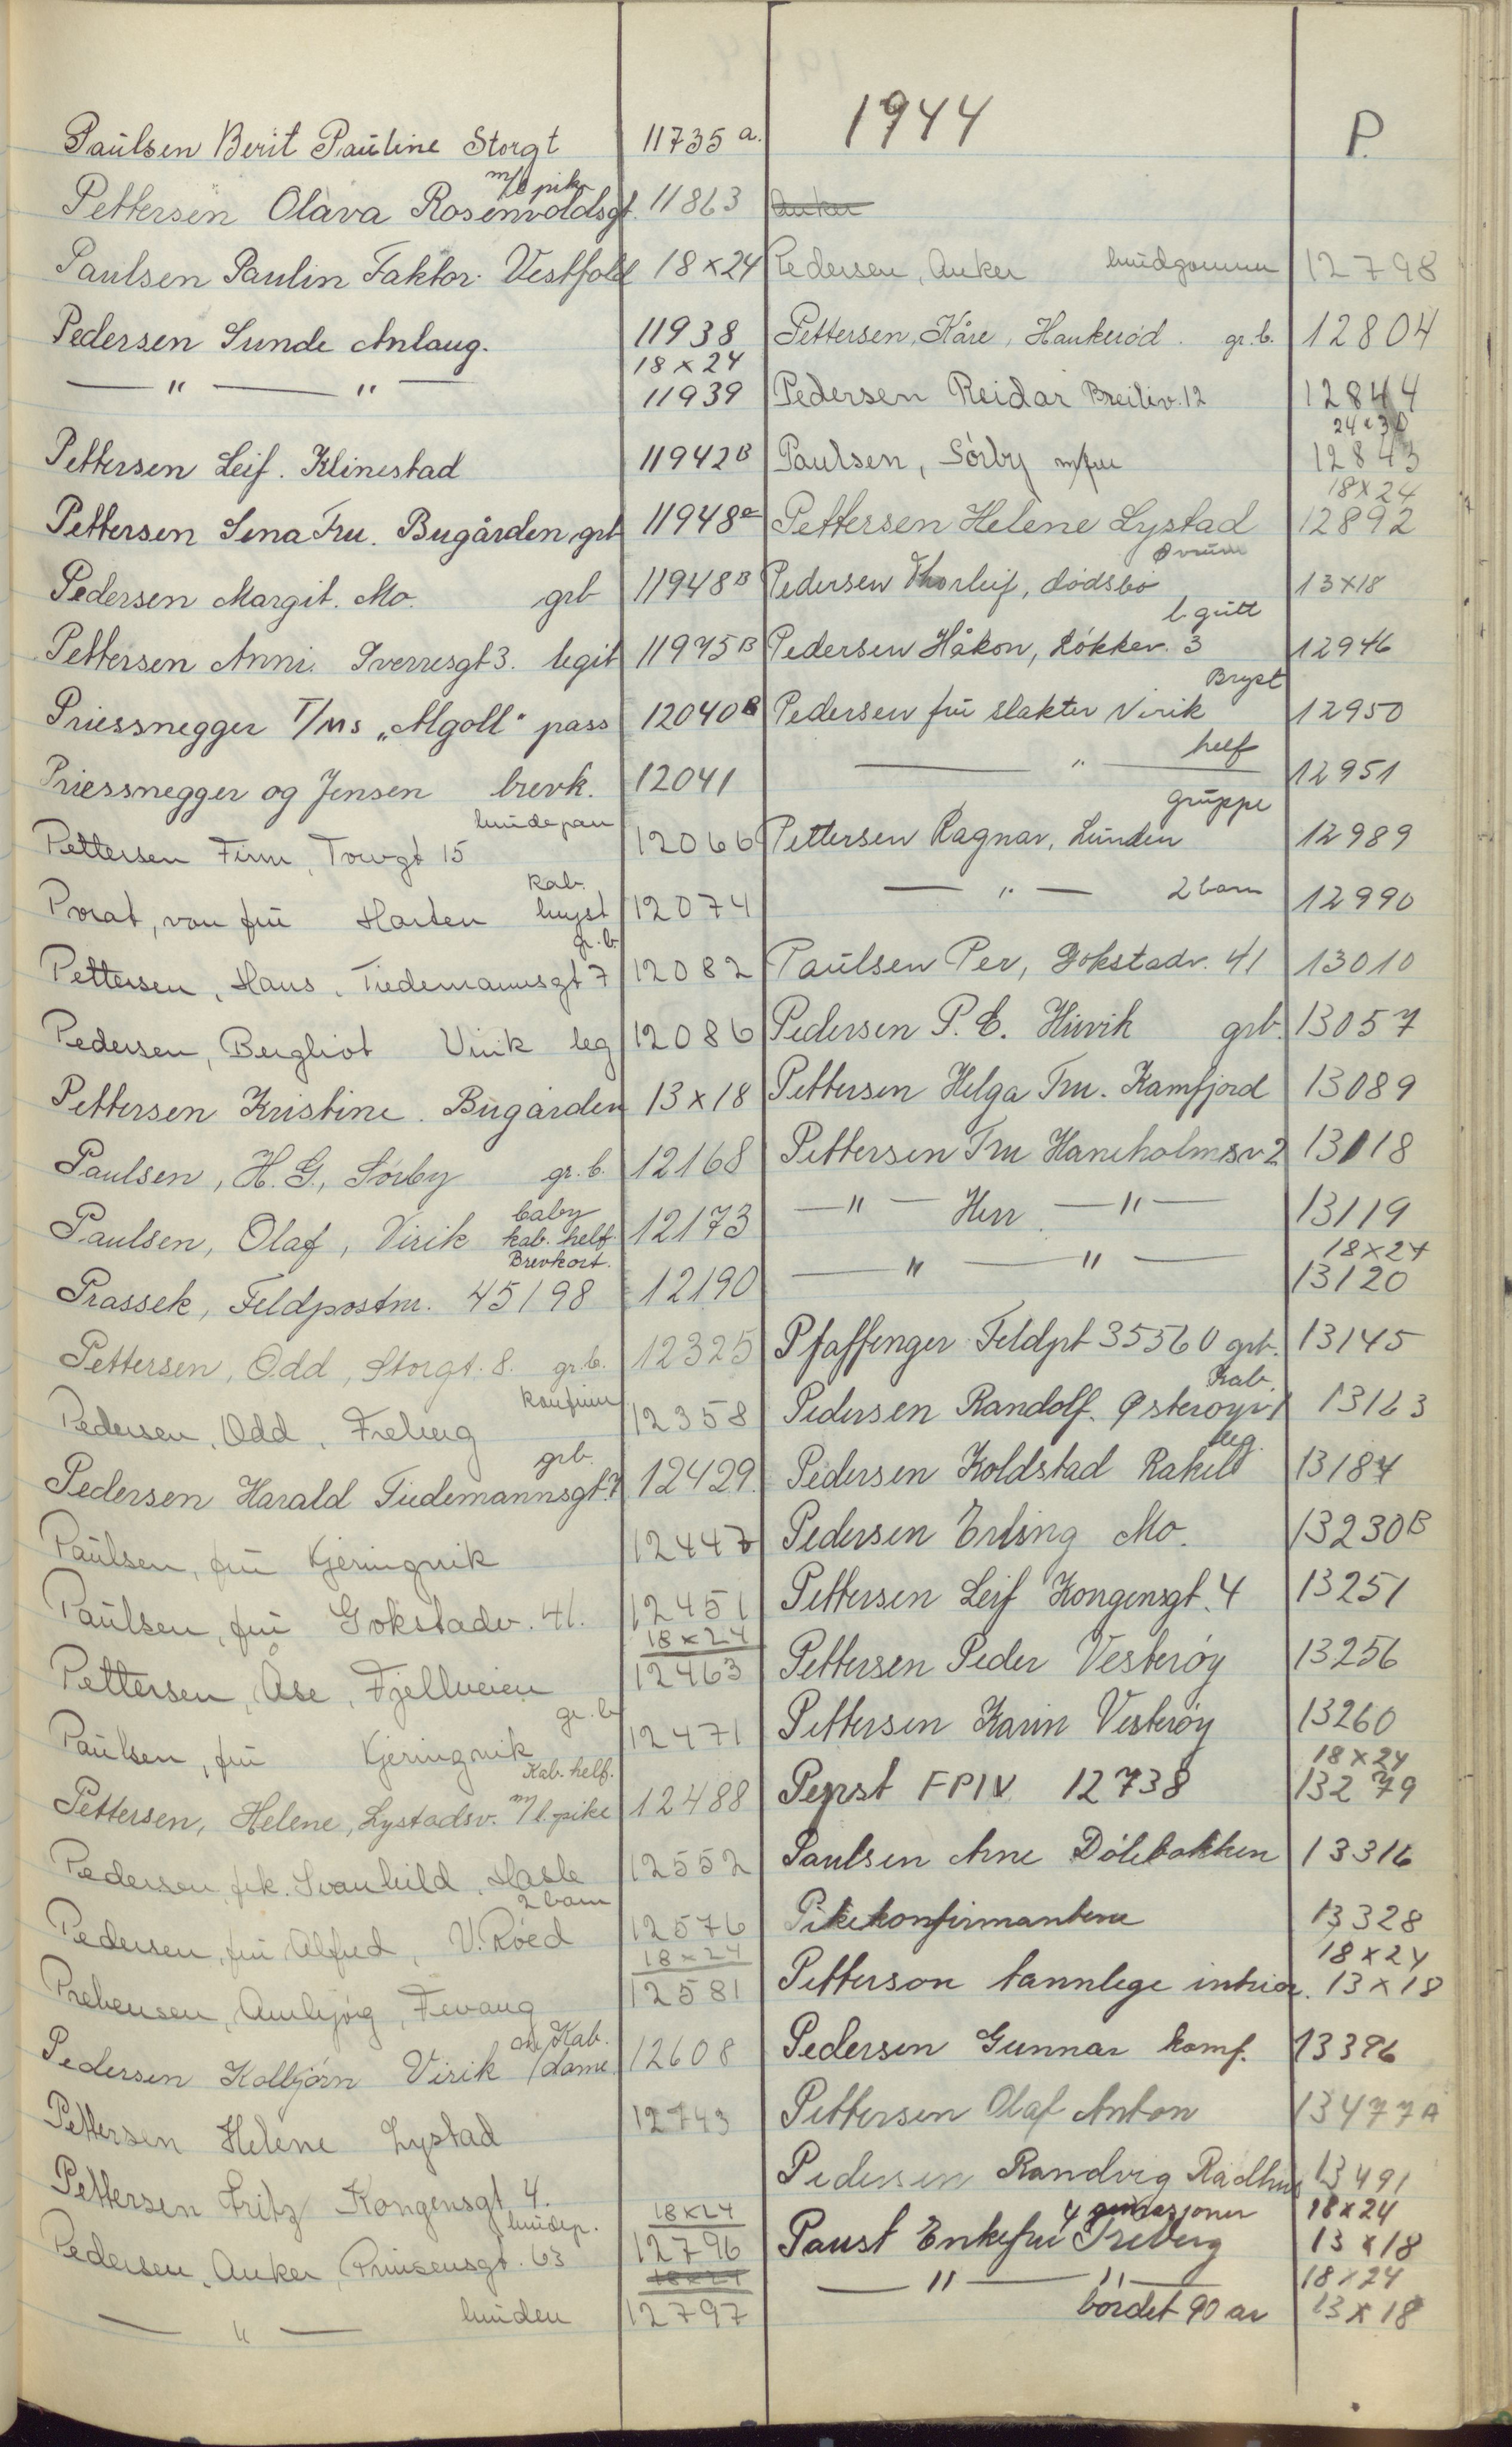 1944
P.
Paulsen Berit Pauline Storgt 11735 a.
m/b pike
Pettersen Olava Rosenvoldsgt. 11863
Paulsen Paulin Faktor. Vestfold 18x24
Pedersen Sunde Anlaug. 11938
18x24
— " — " — 11939
Pettersen Leif. Klinestad 11942B
Pettersen Sena Fru. Bugården grb 11948a
Pedersen Margit. Mo. grb 11948B
Pettersen Anni. Sverresgt 3. legit 11975B
Priessnegger T/Ms „Algoll" pass 12040B
Priessnegger og Jensen brevk. 12041
brudepar
Pettersen Finn, Torvgt 15 12066
kab.
Porat, von frü Harten bryst 12074
gr.b.
Pettersen, Hans, Tiedemannsgt 7 12082
Pedersen, Bergliot Virik leg 12086
Pettersen Kristine. Bugården 13x18
Paulsen, H. G., Sørby gr.b. 12168
baby
Paulsen, Olaf, Virik kab. helf. 12173
Brevkort.
Prassek, Feldpostnr. 45198 12190
Pettersen, Odd, Storgt. 8. gr.b. 12325
konfirm
Pedersen, Odd, Freberg 12358
grb.
Pedersen Harald Tiedemannsgt. 7 12429.
Paulsen, frü Kjeringvik 12447
Paulsen, frü Gokstadv. 41. 12451
18x24
Pettersen, Åse, Fjellveien 12463
gr.b
Paulsen, frü Kjeringvik 12471
Kab. helf.
Pettersen, Helene, Lystadsv. m/l. pike 12488
Pedersen, frk. Svanhild, Hasle 12552
2 barn
Pedersen, frü Alfred, V. Röed 12576
18x24
Prebensen, Ambjøg, Fevang 12581
Kab.
Pedersen Kolbjørn Virik m/dame 12608
Pettersen Helene Lystad 12743
Pettersen Fritz Kongensgt 4.
brudep. 18x24
Pedersen, Anker, Prinsensgt. 63 12796
18x24
— " — bruden 12797
Anker
Pedersen, Anker brudgommen 12798
Pettersen, Kåre, Haukerød. gr.b. 12804
Pedersen Reidar Breiliv. 12 12844
24x30
Paulsen, Sörby m/fru 12843
18x24
Pettersen Helene Lystad 12892
Pedersen Thorleif, dødsbo 13x18
l. gutt
Pedersen Håkon, Løkkev. 3 12946
Bryst
Pedersen frü slakter Virik 12950
helf
— " — 12951
gruppe
Pettersen Ragnar, Lunden 12989
— " — 2 barn 12990
Paulsen Per, Gokstadv. 41 13010
Pedersen P. E. Huvik grb. 13057
Pettersen Helga Fru. Kamfjord 13089
Pettersen Fru Haneholmsv 2 13118
— " — Herr — " — 13119
18x24
— " — " — 13120
Pfaffenger Feldpt 35560 grb. 13145
Kab.
Pedersen Randolf. Østerøyv 1 13163
leg.
Pedersen Koldstad Rakel 13187
Pedersen Erling Mo. 13230B
Pettersen Leif Kongensgt. 4 13251
Pettersen Peder Vesterøy 13256
Pettersen Karin Vesterøy 13260
18x24
Pepst FPIV 12738 13279
Paulsen Arne Dölebakken 13316
Pikekonfirmantene 13328
18x24
Petterson tannlege intriør. 13x18
Pedersen Gunnar komf. 13396
Pettersen Olaf Anton 13477A
Pedersen Randvig Rådhus 13491
4 generasjoner 18x24
Paust Enkefru Freberg 13x18
— " — " — 18x24
bordet 90 år 13x18